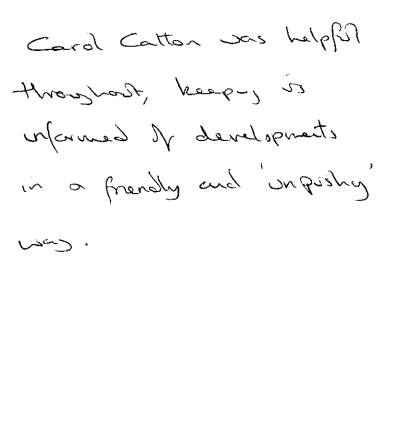 Carol Catton was helpful
throughout, keeping us
informed of developments
in a friendly and 'unpushy'
way.